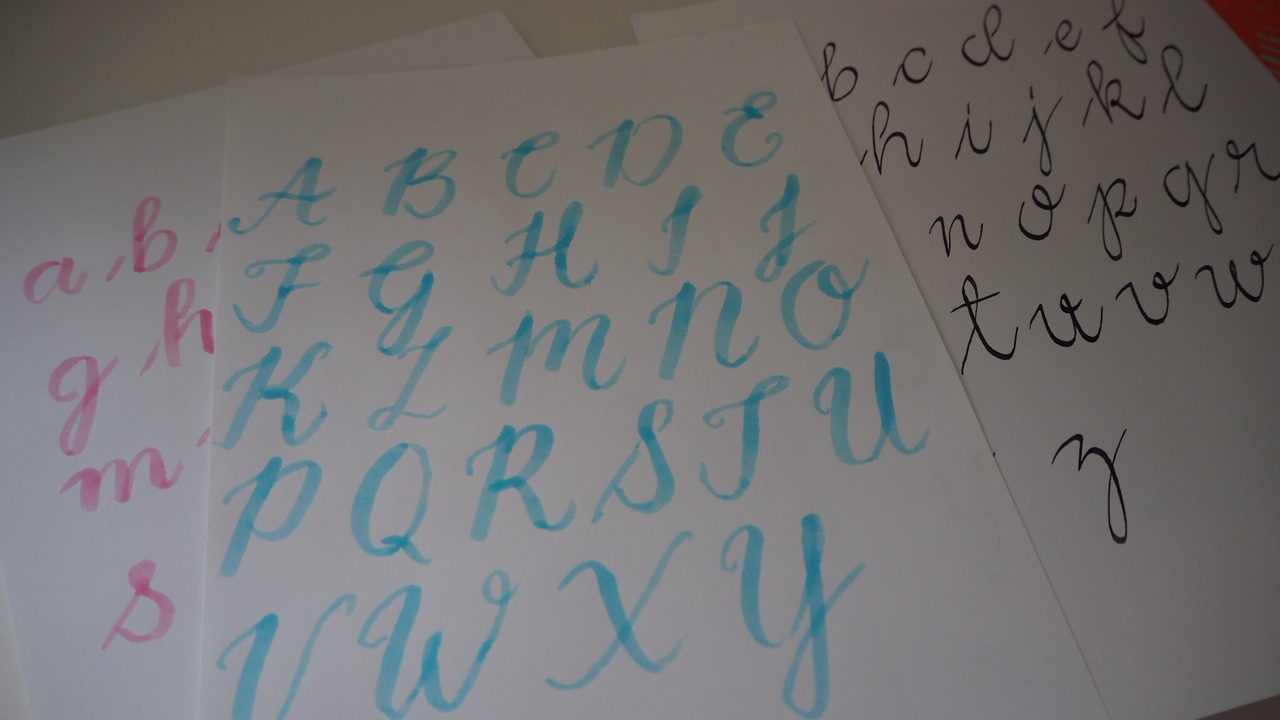 a b
g h
m
s
A B C D E
F G H I J
K L M N O
P Q R S T U
V W X Y
b c d e f
h i j k l
n o p q r
t u v w
z